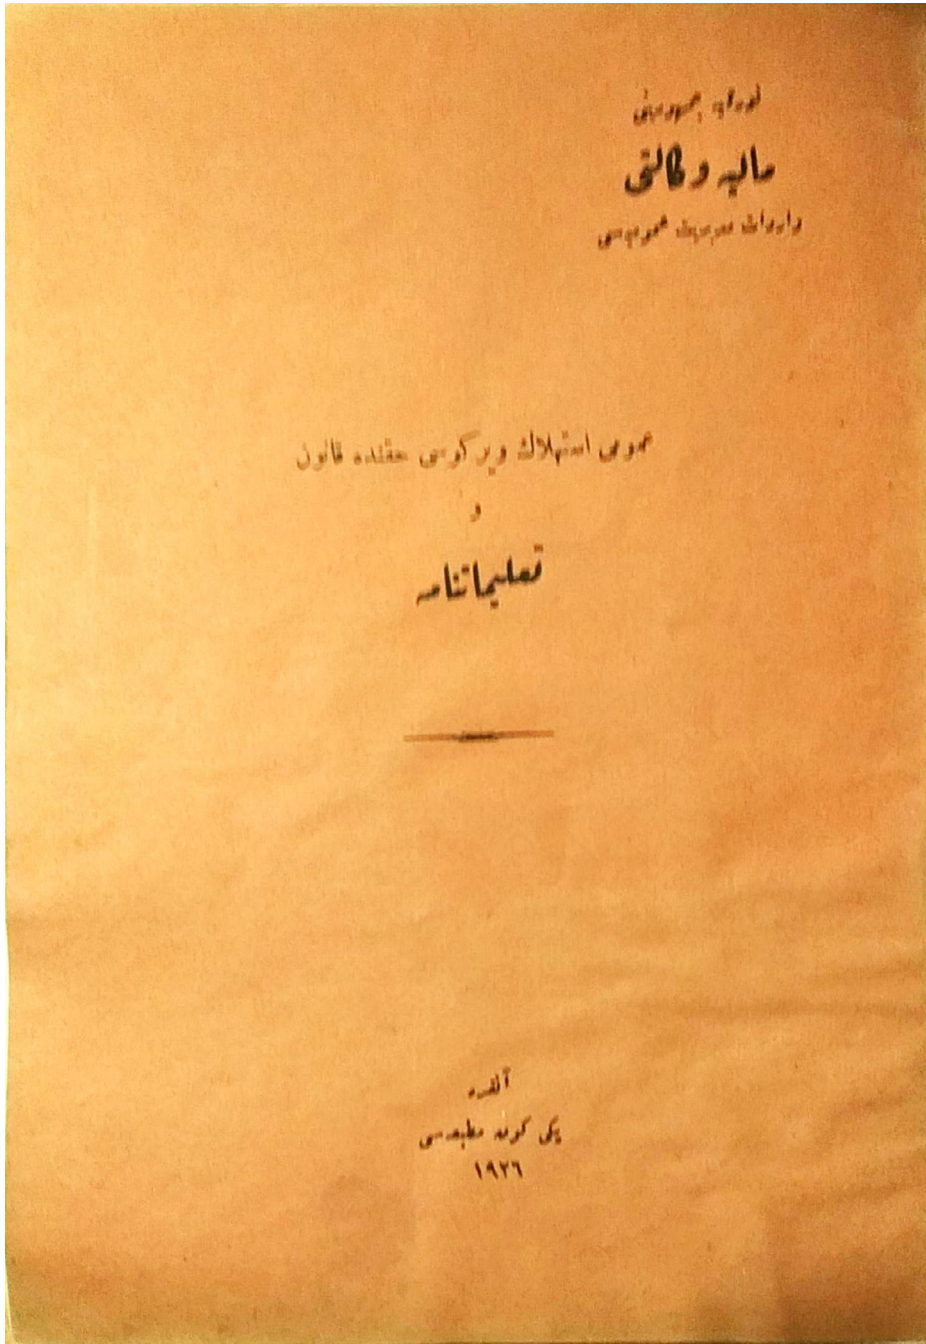 توركیه جمهوریتی
مالیه وكالتی
واردات مدیریت عمومیه‌سی
عمومی استهلاك ویركوسی حقنده قانون
و
تعلیماتنامه
آنقره
یكی كون مطبعه‌سی
۱۹۲٦